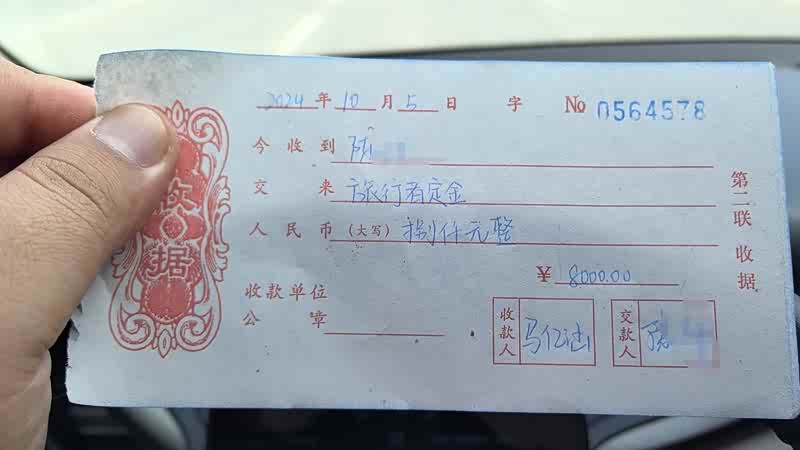 2024 年 10 月 5 日 字 No 0564578
今收到
交来 旅行者定金
人民币(大写) 捌仟元整
¥ 8000.00
收款单位
公章
收款人 马亿涵
交款人
第二联 收据
收据